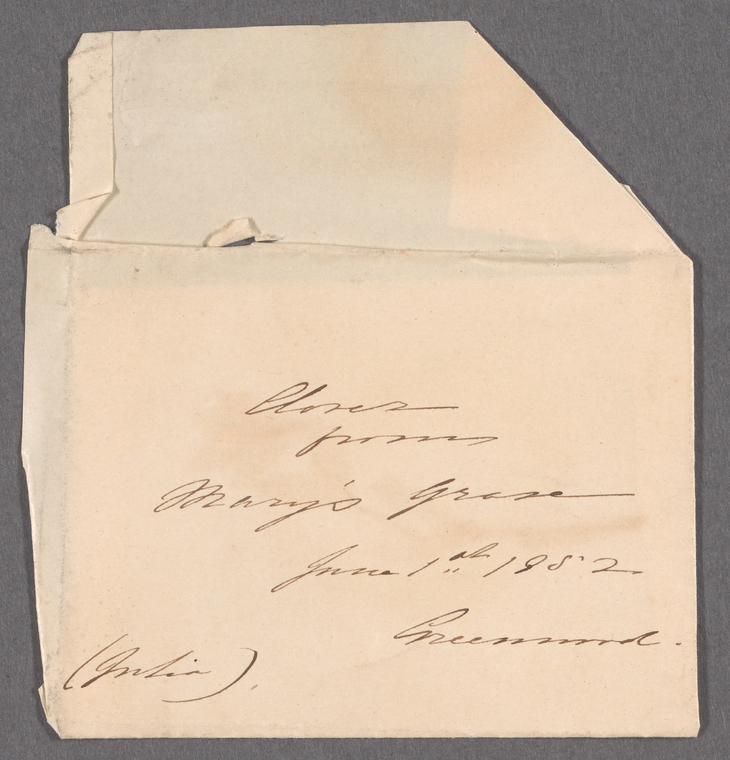 Clover
from
Mary's Grave
June 1st 1852
Greenwood.
(Julia).